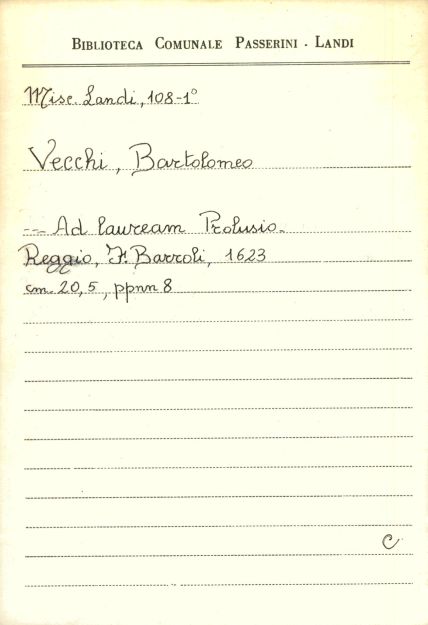 BIBLIOTECA COMUNALE PASSERINI - LANDI
Misc. Landi, 108-1°
Vecchi, Bartolomeo
--- Ad lauream Prolusio.
Reggio, F. Bartoli, 1623
cm. 20,5, ppnn 8
C